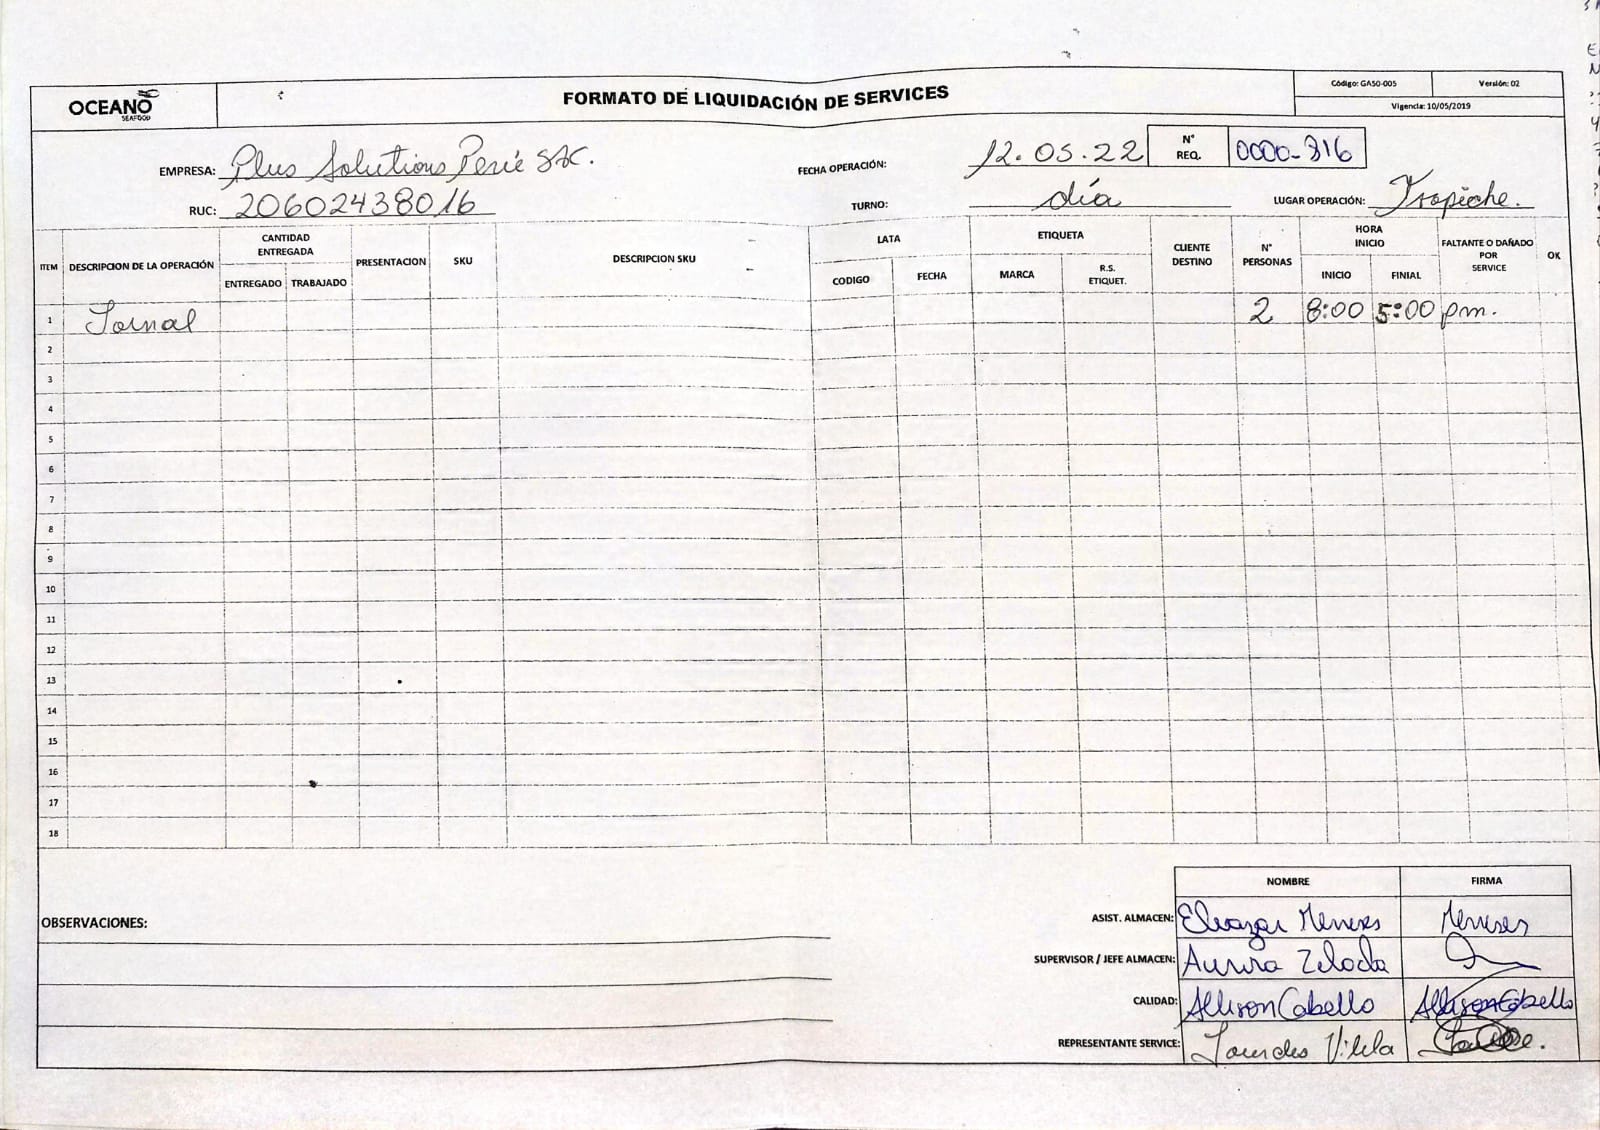 OCEANO
SEAFOOD
FORMATO DE LIQUIDACIÓN DE SERVICES
Código: GA50-005
Versión: 02
Vigencia: 10/05/2019
EMPRESA: Plus Solutions Perú SAC.
FECHA OPERACIÓN: 12.05.22
N° REQ. 0000-316
RUC: 20602438016
TURNO: día
LUGAR OPERACIÓN: Trapiche.
ITEM DESCRIPCION DE LA OPERACIÓN CANTIDAD ENTREGADA ENTREGADO TRABAJADO PRESENTACION SKU DESCRIPCION SKU LATA CODIGO FECHA ETIQUETA MARCA R.S. ETIQUET. CLIENTE DESTINO N° PERSONAS HORA INICIO INICIO FINIAL FALTANTE O DAÑADO POR SERVICE OK
1 Jornal 2 8:00 5:00 pm.
2
3
4
5
6
7
8
9
10
11
12
13
14
15
16
17
18
NOMBRE FIRMA
OBSERVACIONES:
ASIST. ALMACEN: Eleazar Meneses Meneses
SUPERVISOR / JEFE ALMACEN: Aurora
CALIDAD: Allison Cabello Allison Cabello
REPRESENTANTE SERVICE: Lourdes Vilela